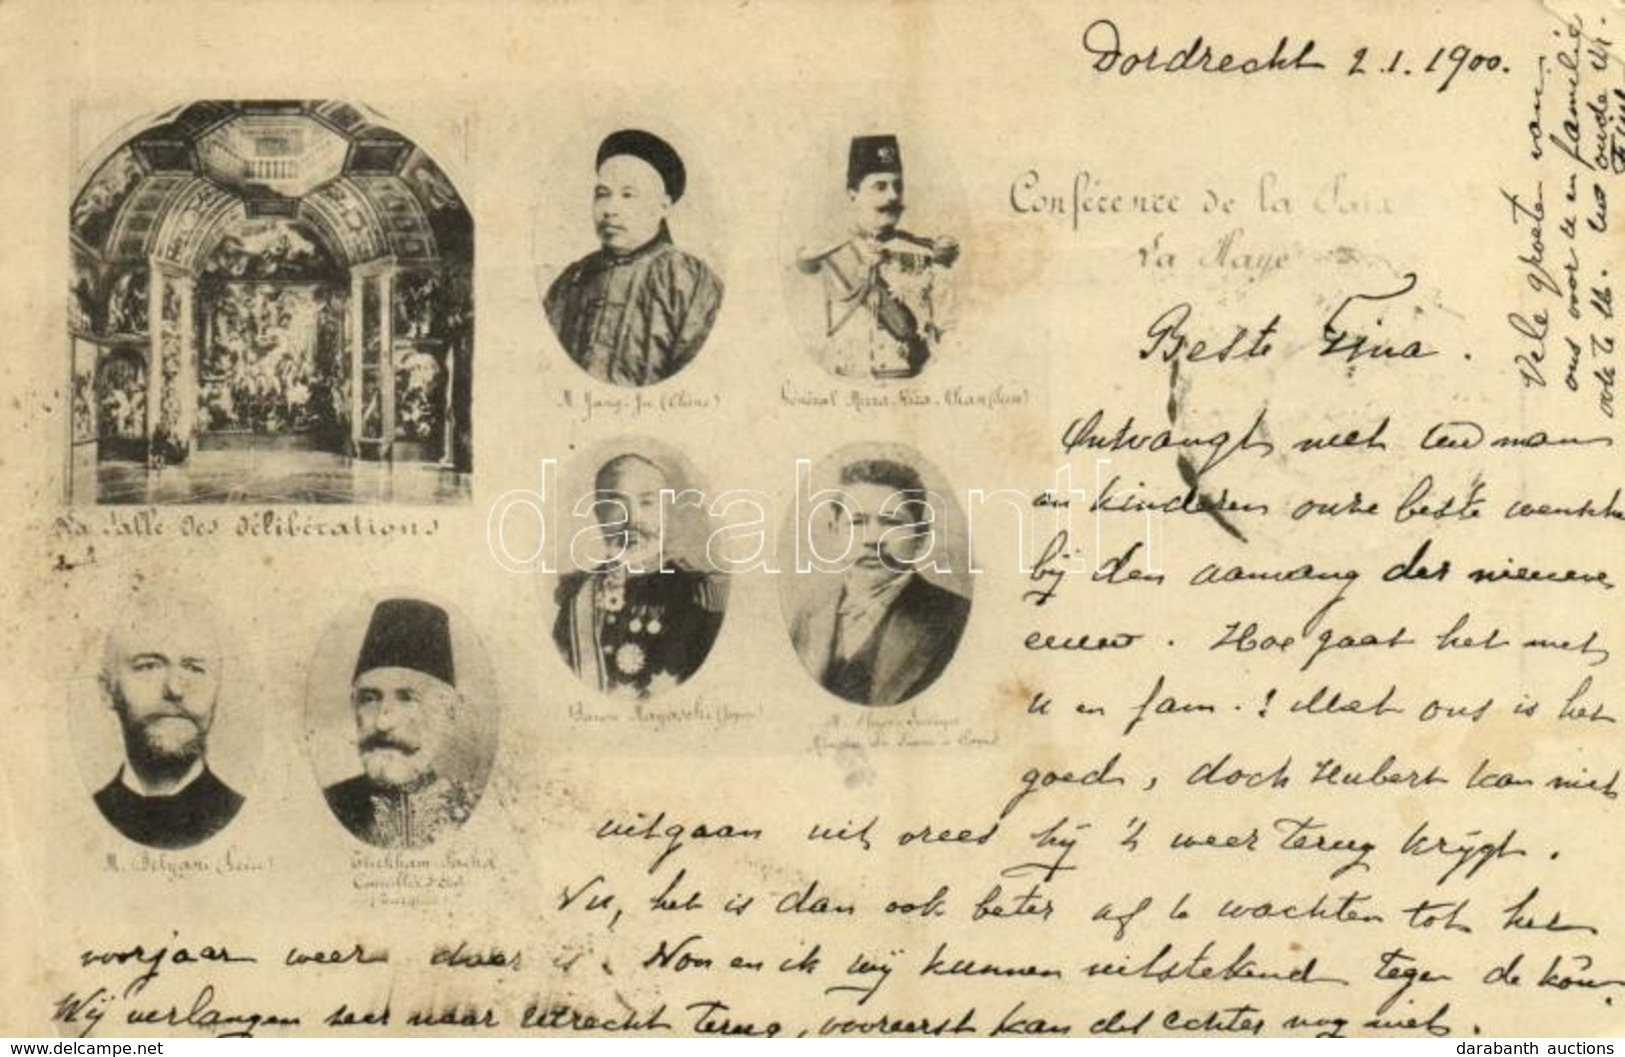 Dordrecht 2.1.1900.
Conférence de la Paix
La Haye
Beste Tina.
Ontvangt met uw man
en kinderen onze beste wensche
bij den aanvang der nieuwe
eeuw. Hoe gaat het met
u en fam.? Met ons is het
goed, doch Hubert kan niet
uitgaan uit vrees hij 't weer terug krygt.
Nu, het is dan ook beter af te wachten tot het
voorjaar weer daar is. Non en ik wij kunnen uitstekend tegen de kou.
Wij verlangen zeer naar Utrecht terug, vooreerst kan dit echter nog niet.
Vele groeten van
ons voor u en familie
ook te M. uw oude vr.
La Salle des délibérations
M. Yang-Yu (Chine)
Général Mirza-Riza-Khan (Perse)
Baron Hayashi (Japon)
M. Delyani (Grèce)
Turkham Pacha
Conseiller d'État
(Turquie)
darabanth
www.delcampe.net
darabanth auctions